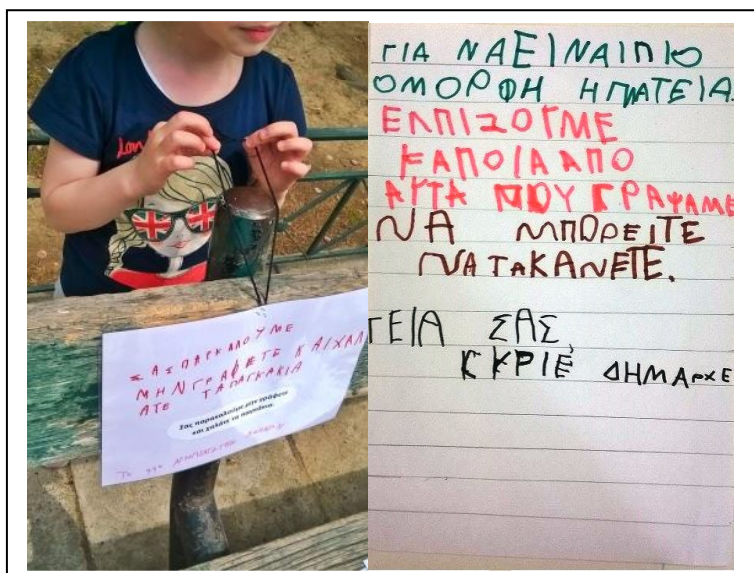 ΣΑΣΠΑΡΚΑΛΟΥΜΕ
ΜΗΝΓΡΑΦΕΤΕ ΚΑΙΧΑΛ
ΑΤΕ ΤΑΠΑΓΚΑΚΙΑ
Σας παρακαλούμε μην γράφετε
και χαλάτε τα παγκάκια.
Το
ΓΙΑ ΝΑΕΙΝΑΙΠΙΟ
ΟΜΟΡΦΗ ΗΠΛΑΤΕΙΑ
ΕΛΠΙΖΟΥΜΕ
ΚΑΠΟΙΑΑΠΟ
ΑΥΤΑ ΠΟΥ ΓΡΑΨΑΜΕ
ΝΑ ΜΠΟΡΕΙΤΕ
ΝΑ ΤΑΚΑΝΕΤΕ.
ΓΕΙΑ ΣΑΣ,
ΚΥΡΙΕ ΔΗΜΑΡΧΕ